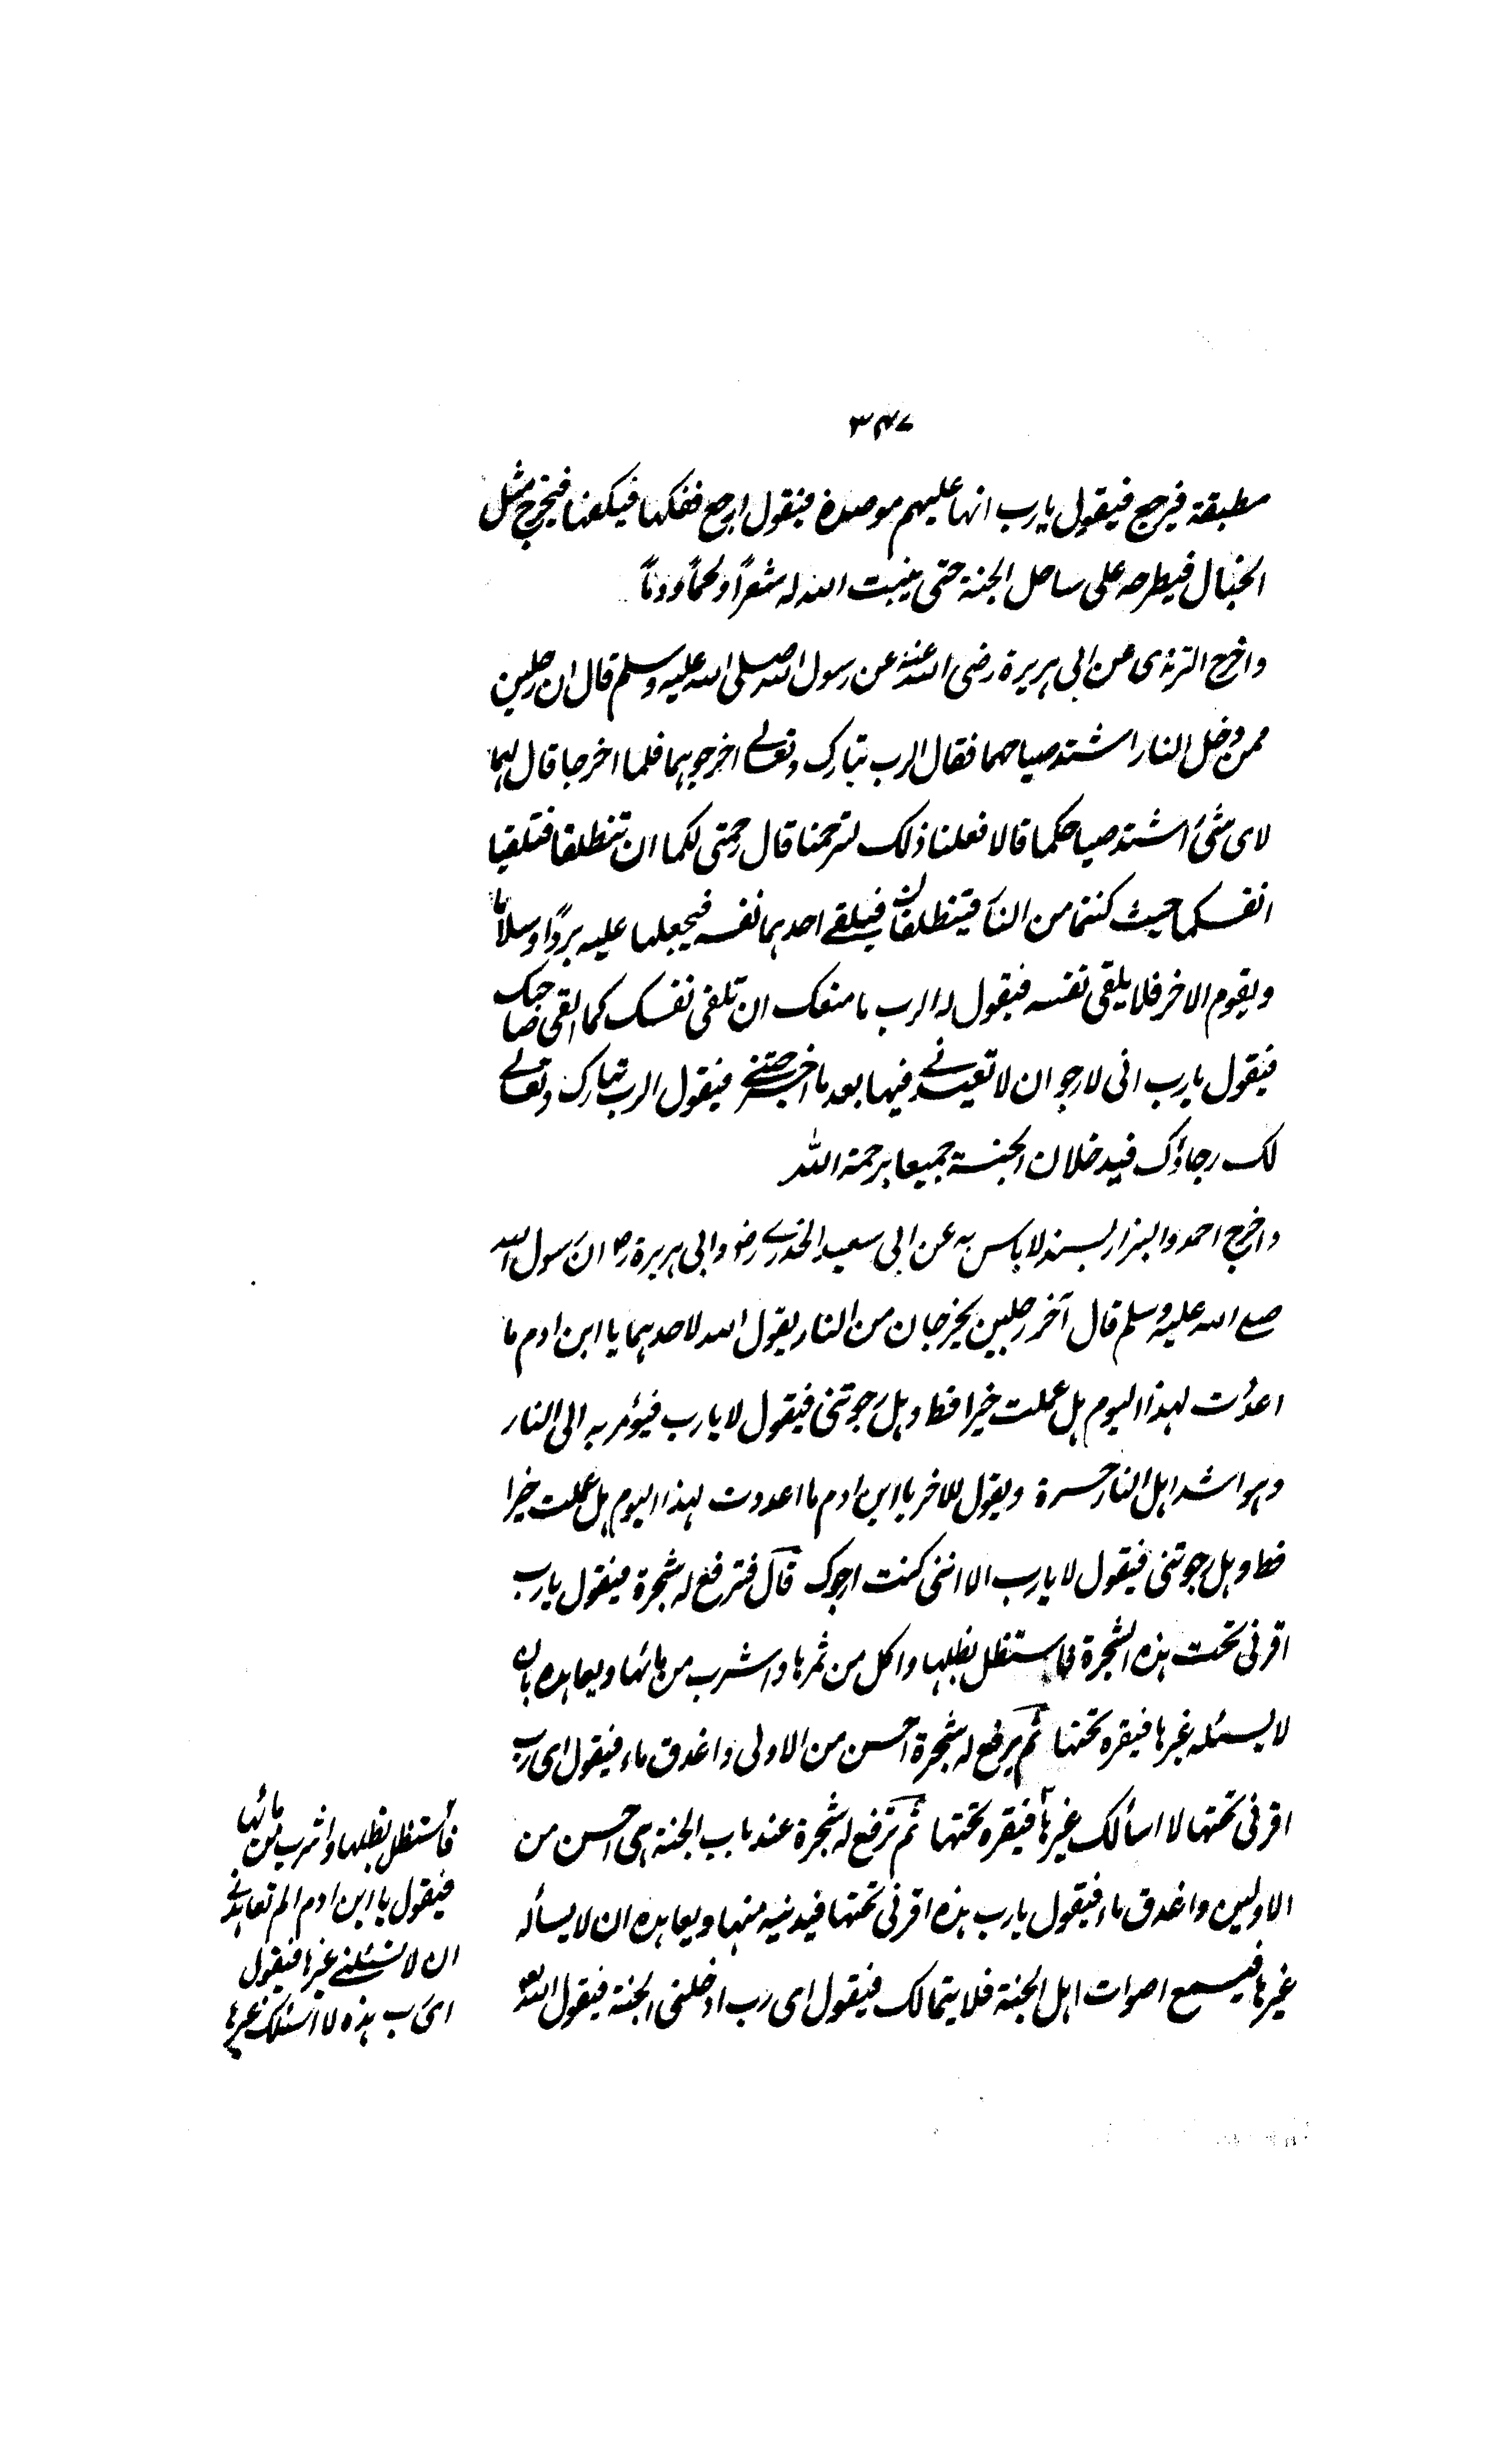 ٣٤٧
مطبقة فيرجع فيقول يارب انها عليهم موصدة فيقول ارجع ففكها فيفكها فيخرج مثل
الخيال فيطرحه على ساحل الجنة حتى ينبت الله له شعراً ولحماً ودماً
واخرج الترمذى عن ابى هريرة رضى الله عنه عن رسول الله صلى الله عليه وسلم قال ان رجلين
ممن دخل النار اشتد صياحهما فقال الرب تبارك وتعالے اخرجوهما فلما اخرجا قال لهما
لاى شئ اشتد صياحكما قالا فعلنا ذلك لترحمنا قال رحمتى لكما ان تنطلقا فتلقيا
انفسكما حيث كنتما من النار فينطلقان فيلقے احدهما نفسه فيجعلها عليه برداً وسلاماً
ويقوم الاخر فلا يلقى نفسه فيقول له الرب ما منعك ان تلقى نفسك كما القى صاحبك
فيقول يارب انى لارجو ان لا تعيدنے فيها بعد ما اخرجتنے فيقول الرب تبارك وتعالے
لك رجاؤك فيدخلان الجنة جميعا برحمة الله
واخرج احمد والبزار بسند لا باس به عن ابى سعيد الخدرے رضو وابى هريرة رض ان رسول الله
صلے الله عليه وسلم قال آخر رجلين يخرجان من النار يقول الله لاحدهما يا ابن ادم ما
اعددت لهذا اليوم هل عملت خيرا قط وهل رجوتنى فيقول لا يارب فيؤمر به الى النار
وهو اشد اهل النار حسرة ويقول للاخر يا ابن ادم ما اعددت لهذا اليوم هل عملت خيرا
قط وهل رجوتنى فيقول لا يارب الا اننى كنت ارجوك قال فترفع له شجرة فيقول يارب
اقرنى تحت هذه الشجرة فاستظل بظلها واكل من ثمرها واشرب من مائها ويعاهده بان
لا يسئله غيرها فيقره تحتها ثم يرفع له شجرة احسن من الاولى واغدق ماء فيقول اى رب
اقرنى تحتها لا اسألك غيرها فيقره تحتها ثم ترفع له شجرة عند باب الجنة هى احسن من
الاوليين واغدق ماء فيقول يارب هذه اقرنى تحتها فيدنيه منها ويعاهده ان لا يسأله
غيرها فيسمع اصوات اهل الجنة فلا يتمالك فيقول اى رب ادخلنى الجنة فيقول الله
فأستظل بظلها واشرب من مائها
فيقول يا ابن ادم الم تعاهدنے
ان لا تسئلنے غيرها فيقول
اى رب هذه لا اسئلك غيرها